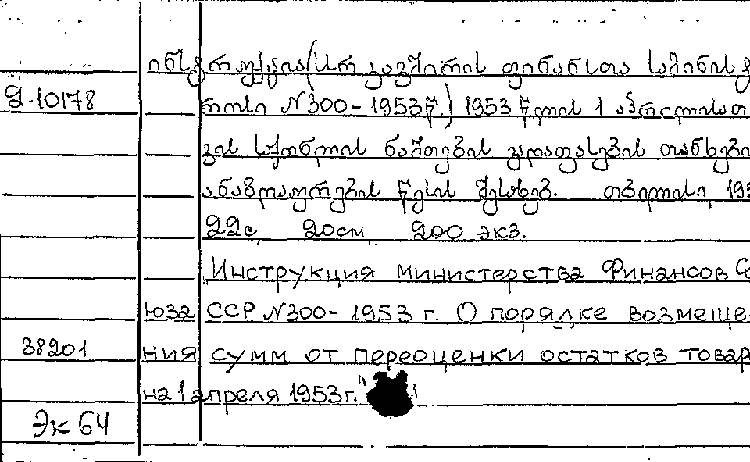 ინსტრუქცია (სსრ კავშირის ფინანსთა სამინისტ
Д-10178
როსი N300-1953წ.) 1953 წლის 1 აპრილისათ
ვის საქონლის ნაშთების გადაფასების თანხები
ანაზღაურების წესის შესახებ. თბილისი, 195
22с 20см 200 экз.
Инструкция министерства Финансов Со
юза ССР N300-1953 г. О порядке возмеще
38201
ния сумм от переоценки остатков товар
на 1 апреля 1953г."
Эк 64